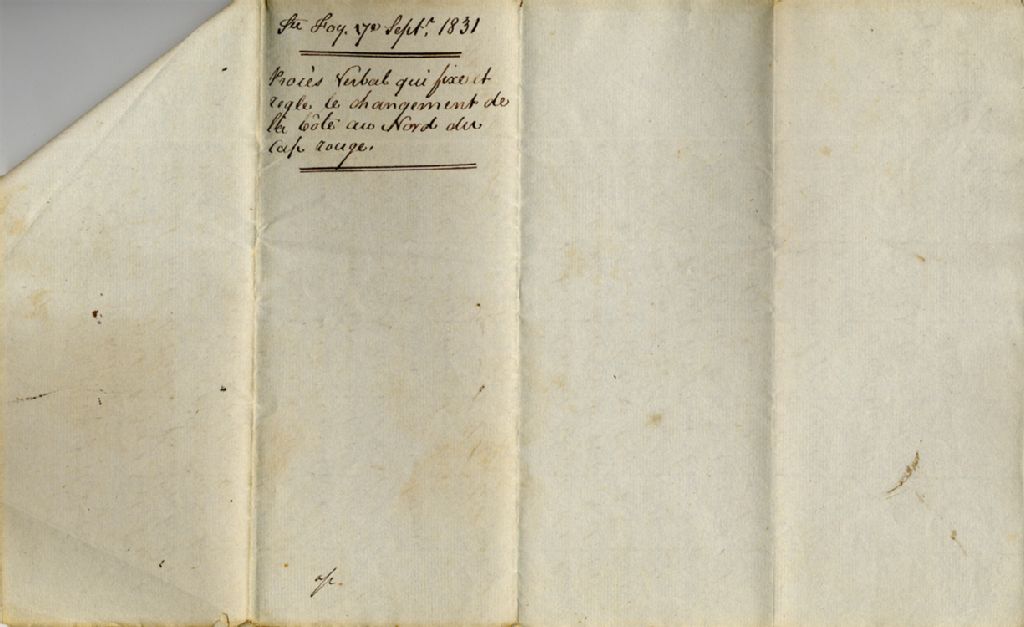 Ste Foy. 17e Septr. 1831
Procès Verbal qui fixe et
regle le changement de
la Côte au Nord du
Cap rouge.